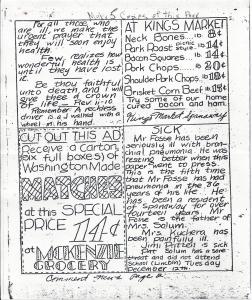 For all those who
are ill, we make the
urgent prayer that
they will soon enjoy
health.
Few realize how
wonderful health is
until they have lost
it.
Be thou faithful
unto death, and I will
give thee a crown of
life. - Rev. 2:10
Remember: A reckless
driver is a d walked with a
wheel in his hand.
CUT OUT THIS AD
Receive a carton
(six full boxes) of
Washington Made
MATCHES
at this SPECIAL
PRICE
14¢
at McKENZIE
GROCERY
AT KINGS MARKET
Neck Bones lb 8¢
Pork Roast picnic style lb 14¢
Bacon Squares lb 14¢
Pork Chops lb 20¢
Shoulder Pork Chops lb 18¢
Brisket Corn Beef lb 15¢
Try some of our home
cured bacon and ham.
King's Market Spanaway
SICK
Mr. Fosse has been
seriously ill with bron-
chial pneumonia. He was
resting better when this
paper went to press.
This is the fifth time
that Mr Fosse has had
pneumonia in the 36
years of his life. He
has been a resident
of Spanaway for over
fourteen years. Mr
Fosse is the father of
Mrs. Solum.
Mrs. Kuchera has
been painfully ill.
Jimi Britton is sick
Pat Solum has a sore
throat and did not attend
School (Lincoln) Tuesday
December 12th.
page 2